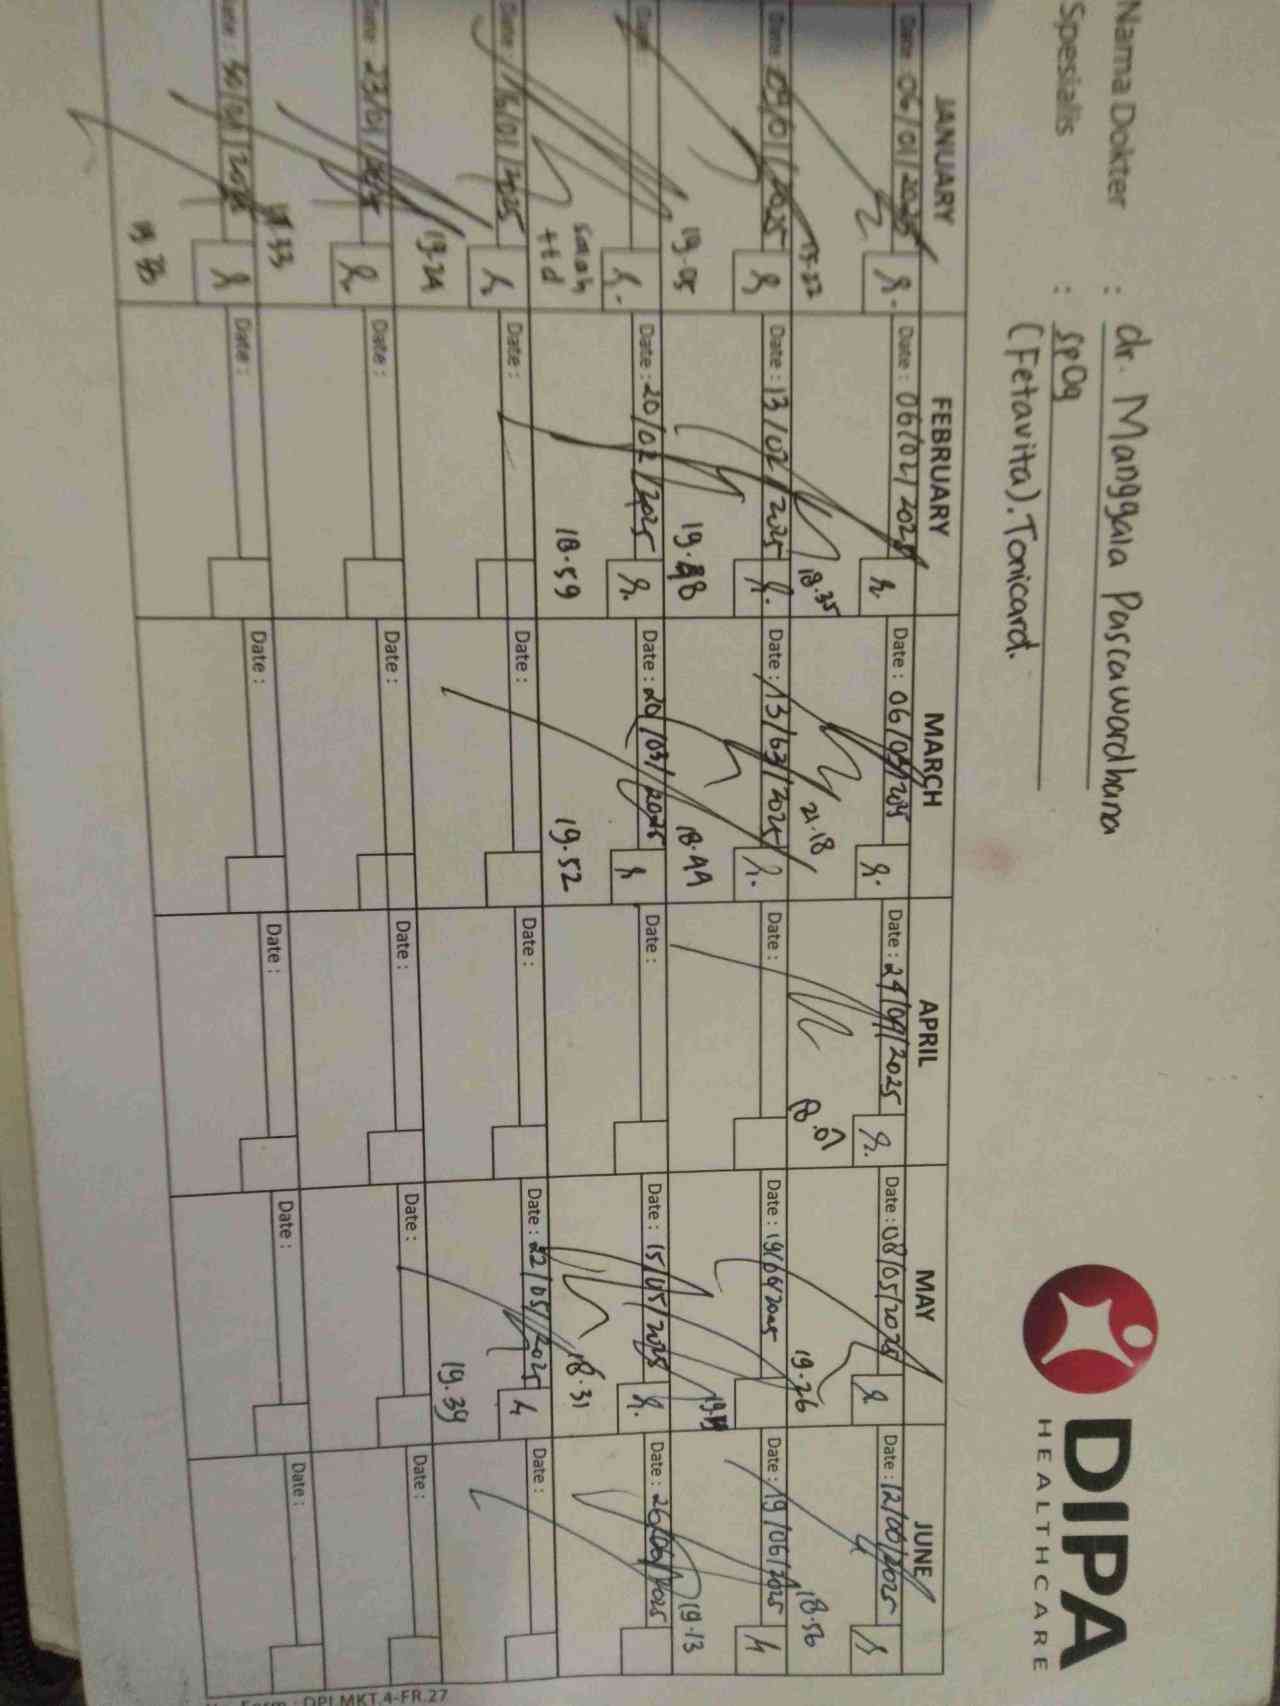 DIPA
HEALTHCARE
Nama Dokter : dr. Manggala Pascawardhana
Spesialis : SpOg
(Fetavita). Tonicard.
JANUARY FEBRUARY MARCH APRIL MAY JUNE
Date : 06/01/2025 Date : 06/02/2025 Date : 06/03/2025 Date : 24/04/2025 Date : 08/05/2025 Date : 12/06/2025
18.35 21.18 18.01 19.26 18.56
Date : 09/01/2025 Date : 13/02/2025 Date : 13/03/2025 Date : Date : 19/06/2025 Date : 19/06/2025
19.05 19.48 18.49 19.13
Date : Date : 20/02/2025 Date : 20/03/2025 Date : Date : 15/05/2025 Date : 26/06/2025
ttd 18.59 19.52 18.31
Date : 16/01/2025 Date : Date : Date : Date : 22/05/2025 Date :
19.24 19.39
Date : 23/01/2025 Date : Date : Date : Date : Date :
Date : 30/01/2025 Date : Date : Date : Date : Date :
19.33
Form : DPI.MKT.4-FR.27